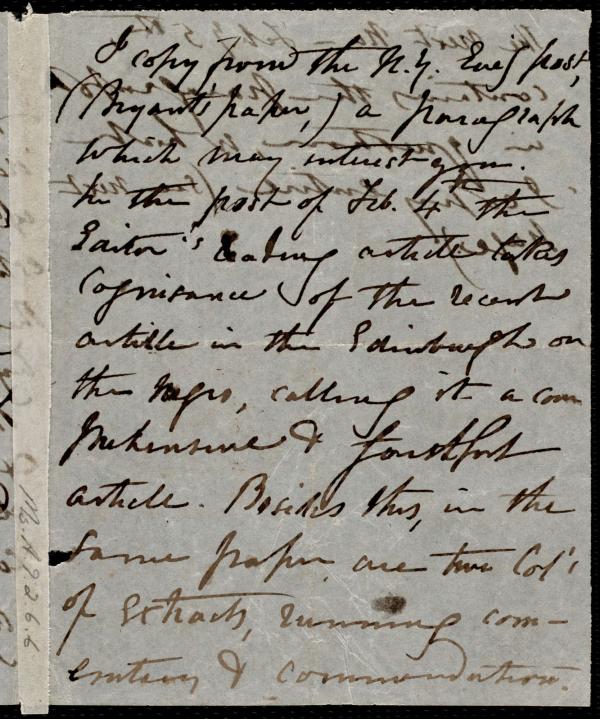 I copy from the N.Y. Eve'g post,
(Bryant's paper,) a paragraph
which may interest you.
In the post of Feb. 4th the
Editor's leading article takes
Cognisance of the recent
article in the Edinburgh on
the Negro, calling it a com
prehensive &
article. Besides this, in the
same paper, are two Col's
of Extracts, running com-
entary & commendation.